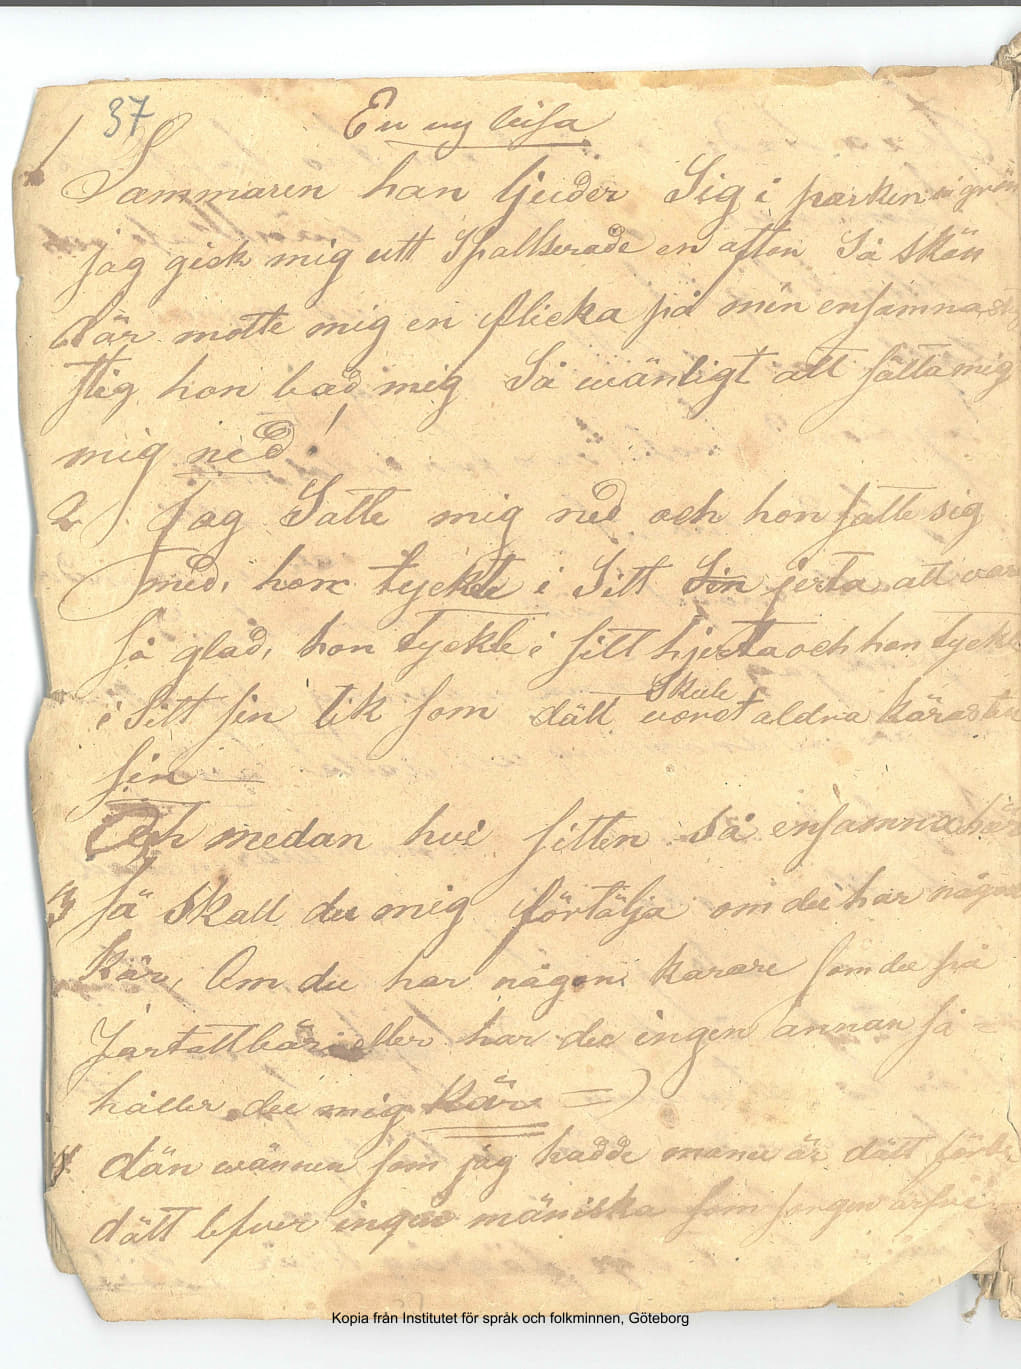 37
En ny visa
1 Sommaren han ljuder Sig i parken
jag gick mig utt Spattserade en afton Så skön
där motte mig en flicka på min ensamna
stig hon bad mig Så wänligt att sätta mig
mig ned!
2 Jag Satte mig ned och hon satte sig
med, hon tyckte i Sitt Sin jerta att vara
så glad, hon tyckte i sitt hjerta och hon tyckte
i Sitt sin lik som dätt voret aldra kärasten
Skule
sin
Och medan hvi sitten så ensamna här
3 så skall du mig förtälja om du har någon
kär, Om du har någon karare som du på
jartatt bär eller har du ingen annan så =
håller du mig kär =
4 dän wännen som jag hadde är dätt
dätt lefver ingen mäniska som sorgen
Kopia från Institutet för språk och folkminnen, Göteborg